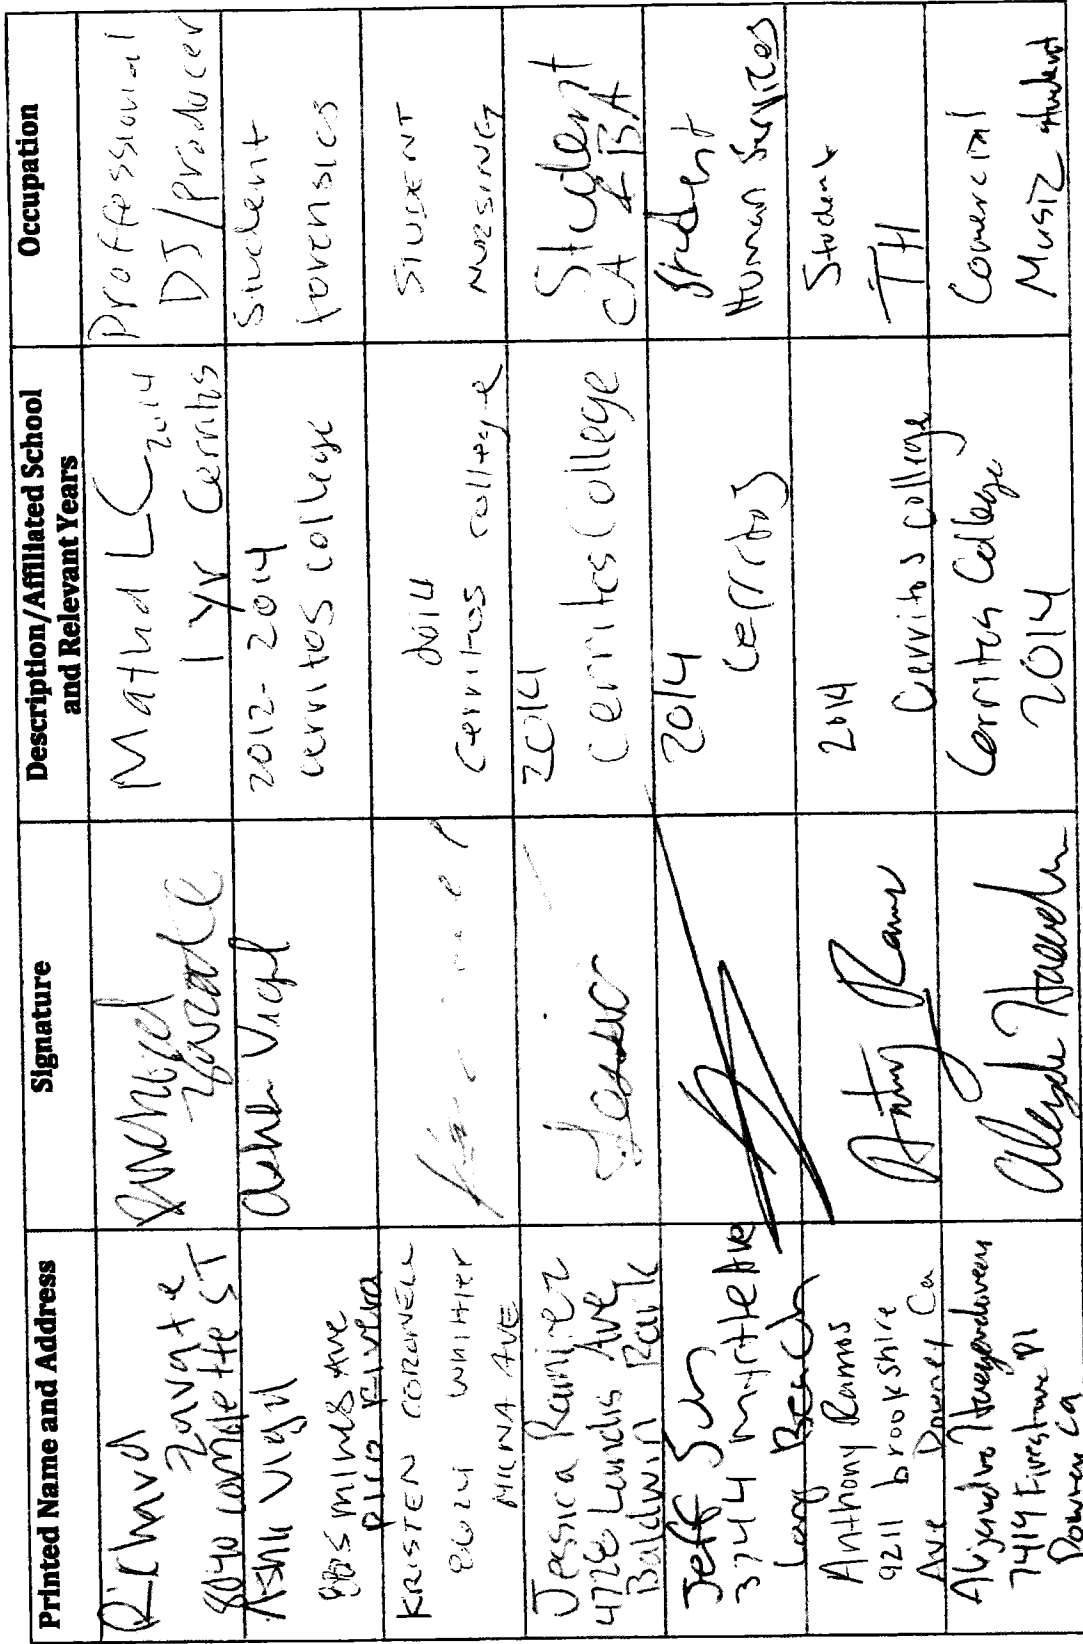 Printed Name and Address
Signature
Description/Affiliated School
and Relevant Years
Occupation
Richard
Zarate
8040 comolette ST
Richard
Zarate
Math LC 2014
1 yr Cerritos
Proffessional
DJ/producer
Ashli Vigil
Mines Ave
Pico Rivera
Vigil
2012-2014
cerritos college
Student
forensics
KRISTEN CORONELL
WHITTIER
AVE
2014
Cerritos college
STUDENT
NURSING
Jessica Ramirez
4728 Landis Ave
Baldwin Park
Jessica
2014
Cerritos College
Student
CA & BA
Jeff
3744 Myrtle Ave
Long Beach
2014
Cerritos
Student
Human Services
Anthony Ramos
9211 brookshire
Ave Downey Ca
2014
Cerritos college
Student
TH
7419 Firestone Pl
Downey Ca
Cerritos College
2014
Comercial
Music student